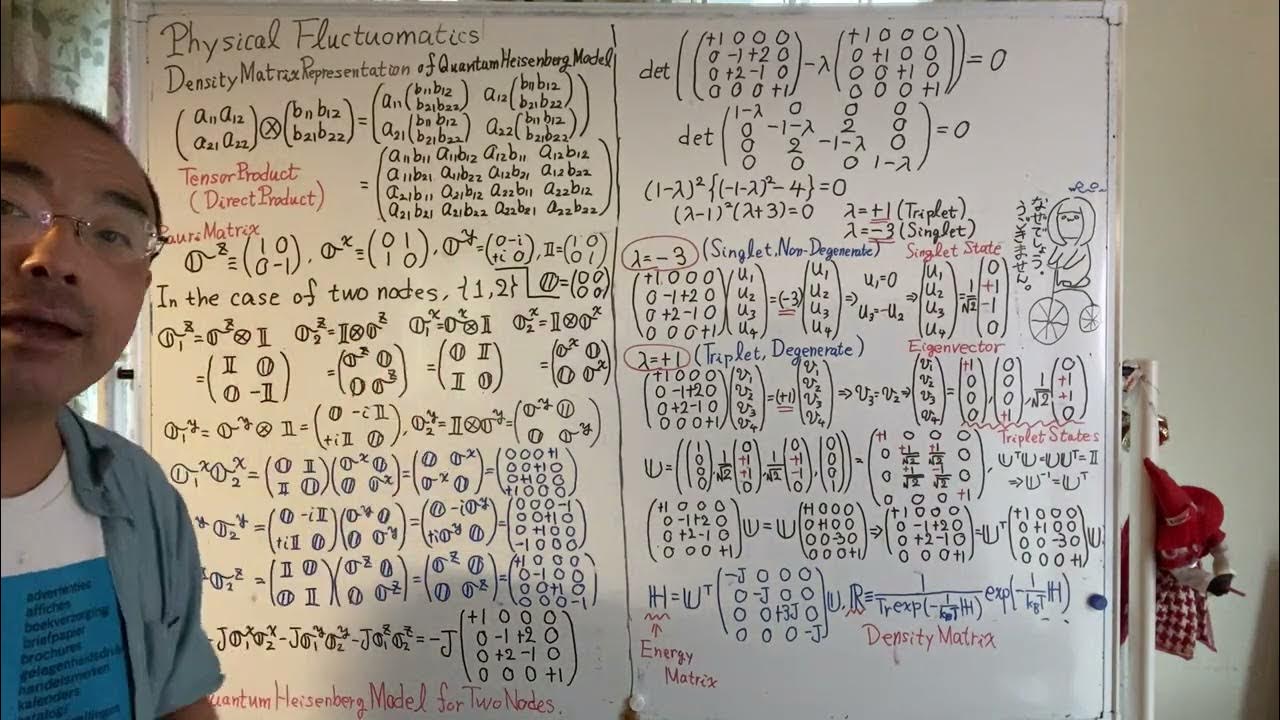 Physical Fluctuomatics
Density Matrix Representation of Quantum Heisenberg Model
(a11 a12 / a21 a22) ⊗ (b11 b12 / b21 b22) = (a11(b11 b12 / b21 b22) a12(b11 b12 / b21 b22) / a21(b11 b12 / b21 b22) a22(b11 b12 / b21 b22))
Tensor Product
(Direct Product)
= (a11b11 a11b12 a12b11 a12b12 / a11b21 a11b22 a12b21 a12b22 / a21b11 a21b12 a22b11 a22b12 / a21b21 a21b22 a22b21 a22b22)
auri Matrix
σ^z ≡ (1 0 / 0 -1), σ^x = (0 1 / 1 0), σ^y = (0 -i / +i 0), 𝕀 = (1 0 / 0 1)
In the case of two nodes, {1,2} 𝕆 = (0 0 / 0 0)
σ1^z = σ^z⊗𝕀 σ2^z = 𝕀⊗σ^z σ1^x = σ^x⊗𝕀 σ2^x = 𝕀⊗σ^x
= (𝕀 𝕆 / 𝕆 -𝕀) = (σ^z 𝕆 / 𝕆 σ^z) = (𝕆 𝕀 / 𝕀 𝕆) = (σ^x 𝕆 / 𝕆 σ^x)
σ1^y = σ^y ⊗ 𝕀 = (𝕆 -i𝕀 / +i𝕀 𝕆), σ2^y = 𝕀⊗σ^y = (σ^y 𝕆 / 𝕆 σ^y)
σ1^x σ2^x = (𝕆 𝕀 / 𝕀 𝕆)(σ^x 𝕆 / 𝕆 σ^x) = (𝕆 σ^x / σ^x 𝕆) = (0 0 0 +1 / 0 0 +1 0 / 0 +1 0 0 / +1 0 0 0)
^y σ2^y = (𝕆 -i𝕀 / +i𝕀 𝕆)(σ^y 𝕆 / 𝕆 σ^y) = (𝕆 -iσ^y / +iσ^y 𝕆) = (0 0 0 -1 / 0 0 +1 0 / 0 +1 0 0 / -1 0 0 0)
σ2^z = (𝕀 𝕆 / 𝕆 𝕀)(σ^z 𝕆 / 𝕆 σ^z) = (σ^z 𝕆 / 𝕆 σ^z) = (+1 0 0 0 / 0 -1 0 0 / 0 0 +1 0 / 0 0 0 -1)
-Jσ1^xσ2^x - Jσ1^yσ2^y - Jσ1^zσ2^z = -J (+1 0 0 0 / 0 -1 +2 0 / 0 +2 -1 0 / 0 0 0 +1)
Quantum Heisenberg Model for Two Nodes.
det((+1 0 0 0 / 0 -1 +2 0 / 0 +2 -1 0 / 0 0 0 +1) - λ(+1 0 0 0 / 0 +1 0 0 / 0 0 +1 0 / 0 0 0 +1)) = 0
det(1-λ 0 0 0 / 0 -1-λ 2 0 / 0 2 -1-λ 0 / 0 0 0 1-λ) = 0
(1-λ)²{(-1-λ)²-4} = 0
(λ-1)²(λ+3) = 0 λ = +1 (Triplet)
λ = -3 (Singlet)
なぜでしょう。
うごきません。
λ = -3 (Singlet, Non-Degenerate) Singlet State
(+1 0 0 0 / 0 -1 +2 0 / 0 +2 -1 0 / 0 0 0 +1)(u1 / u2 / u3 / u4) = (-3)(u1 / u2 / u3 / u4) ⇒ u1=0 u3=-u2 ⇒ (u1 / u2 / u3 / u4) = 1/√2 (0 / +1 / -1 / 0)
λ = +1 (Triplet, Degenerate) Eigenvector
(+1 0 0 0 / 0 -1 +2 0 / 0 +2 -1 0 / 0 0 0 +1)(v1 / v2 / v3 / v4) = (+1)(v1 / v2 / v3 / v4) ⇒ v3=v2 ⇒ (v1 / v2 / v3 / v4) = (+1 / 0 / 0 / 0), (0 / 0 / 0 / +1), 1/√2 (0 / +1 / +1 / 0)
Triplet States
U = ((1 / 0 / 0 / 0), 1/√2 (0 / +1 / +1 / 0), 1/√2 (0 / +1 / -1 / 0), (0 / 0 / 0 / 1)) = (+1 0 0 0 / 0 +1/√2 +1/√2 0 / 0 +1/√2 -1/√2 0 / 0 0 0 +1), U^T U = U U^T = 𝕀
⇒ U^-1 = U^T
(+1 0 0 0 / 0 -1 +2 0 / 0 +2 -1 0 / 0 0 0 +1) U = U (+1 0 0 0 / 0 +1 0 0 / 0 0 -3 0 / 0 0 0 +1) ⇒ (+1 0 0 0 / 0 -1 +2 0 / 0 +2 -1 0 / 0 0 0 +1) = U^T (+1 0 0 0 / 0 +1 0 0 / 0 0 -3 0 / 0 0 0 +1) U
H = U^T (-J 0 0 0 / 0 -J 0 0 / 0 0 +3J 0 / 0 0 0 -J) U, R ≡ 1/(Tr exp(-1/(kBT) H)) exp(-1/(kBT) H)
Energy
Matrix
Density Matrix
advertenties
affiches
boekverzorging
briefpapier
brochures
gelegenheidsdru
handelsmerken
kalenders